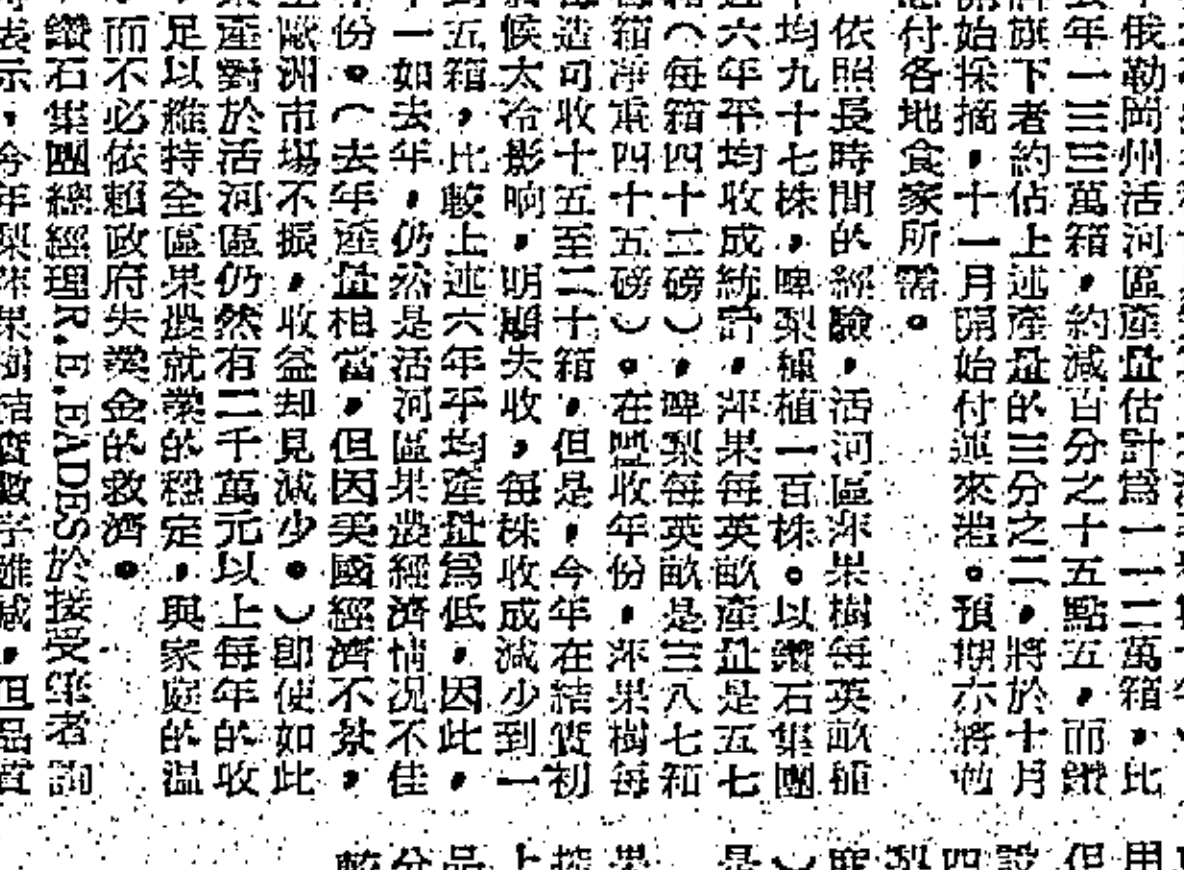 俄勒岡州活河區產量估計爲一一二萬箱，比
年一三三萬箱，約減百分之十五點五，而鑽
旗下者約佔上述產量的三分之二，將於十月
始採摘，十一月開始付運來港。預期亦將
付各地食家所需。
依照長時間的經驗，活河區苹果樹每英畝種
均九十七株，啤梨種植一百株。以鑽石集團
六年平均收成統計，苹果每英畝產量是五七
（每箱四十二磅），啤梨每英畝是三八七箱
箱淨重四十五磅）。在豐收年份，苹果樹每
造可收十五至二十箱，但是，今年在結實初
候太冷影响，明顯失收，每株收成減少到一
五箱，比較上述六年平均產量爲低，因此，
一如去年，仍然是活河區果農經濟情况不佳
份。（去年產量相當，但因美國經濟不景，
歐洲市場不振，收益却見減少。）卽使如此
產對於活河區仍然有二千萬元以上每年的收
足以維持全區果農就業的穩定，與家庭的温
而不必依賴政府失業金的救濟。
鑽石集團總經理R.E.EADES於接受筆者詢
表示，今年梨苹果樹結實數字雖減，但品質